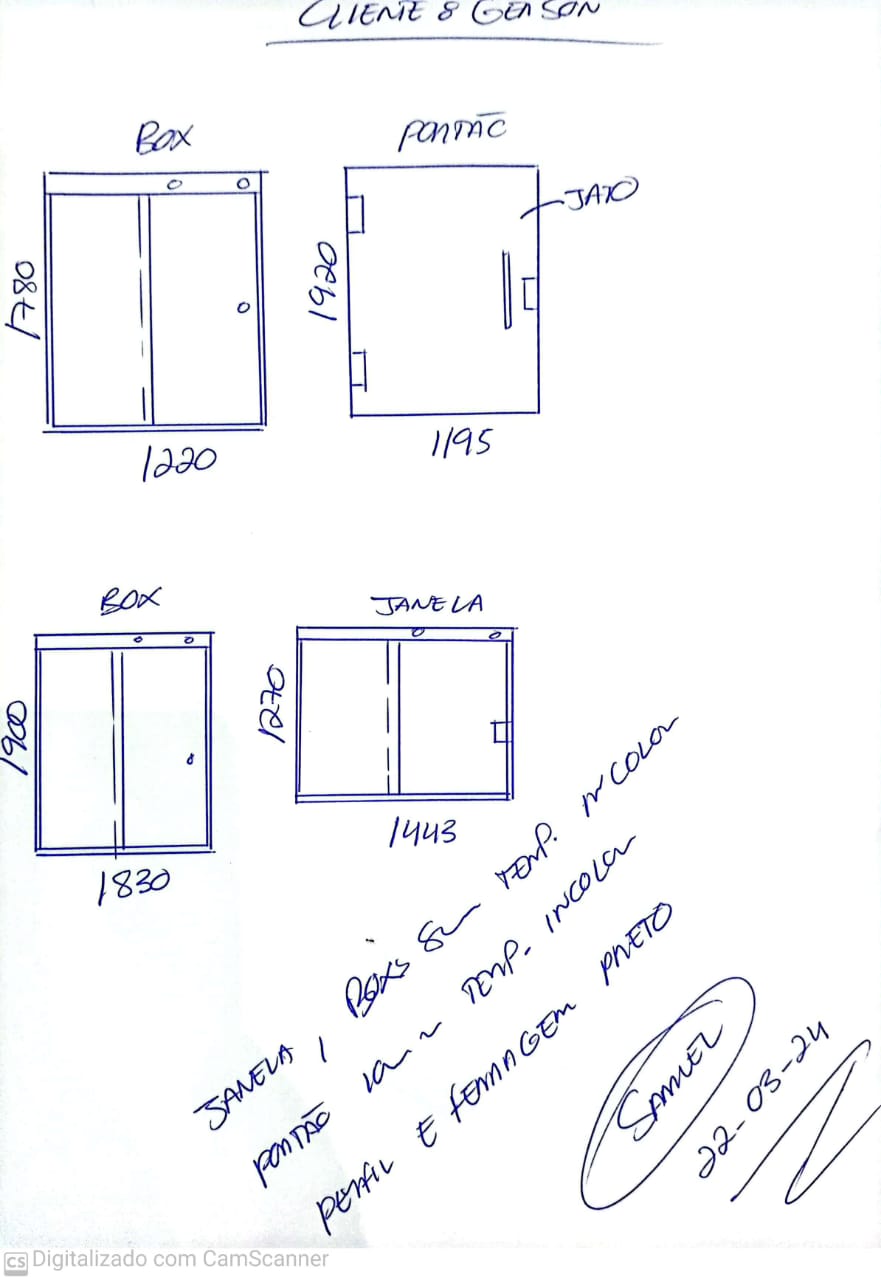 CLIENTE: GEASON
BOX
PORTÃO
JATO
1780
1920
1220
1195
BOX
JANELA
1900
1270
1830
1443
JANELA, BOXS 8mm TEMP. INCOLOR
PORTÃO 10mm TEMP. INCOLOR
PERFIL E FERRAGEM PRETO
SAMUEL
22-03-24
CS Digitalizado com CamScanner